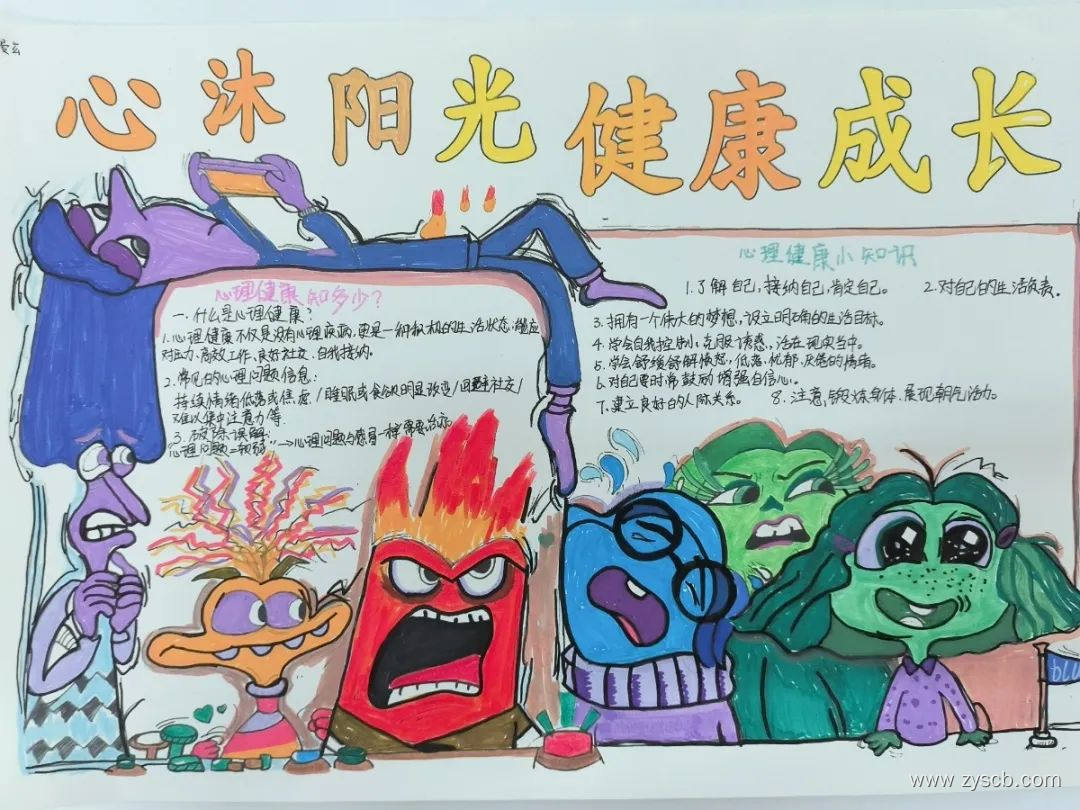 心沐阳光健康成长
心理健康知多少?
一.什么是心理健康?
1.心理健康不仅是没有心理疾病,更是一种积极的生活状态,能应
对压力、高效工作、良好社交、自我接纳。
2.常见的心理问题信息:
持续情绪低落或焦虑/睡眠或食欲明显改变/回避社交/
难以集中注意力等.
3.破除误解:
心理问题=软弱 → 心理问题与感冒一样需要治疗
心理健康小知识
1.了解自己,接纳自己,肯定自己。 2.对自己的生活负责。
3.拥有一个伟大的梦想,设立明确的生活目标。
4.学会自我控制,克服诱惑,活在现实当中。
5.学会舒缓舒解愤怒,低落,忧郁,厌倦的情绪。
6.对自己要时常鼓励增强自信心。
7.建立良好的人际关系。 8.注意锻炼身体,展现朝气活力。
blu
www.zyscb.com